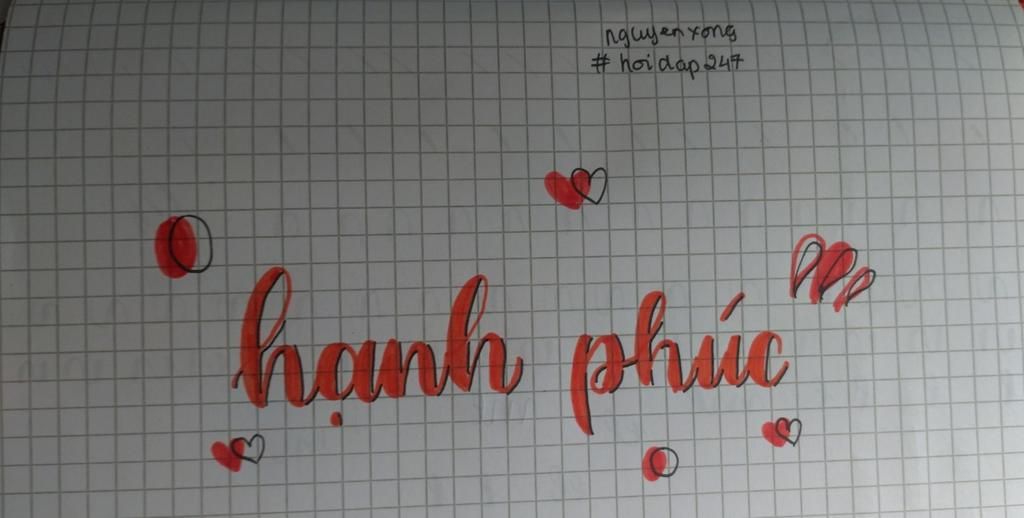 nguyenxong
#hoidap247
hạnh phúc